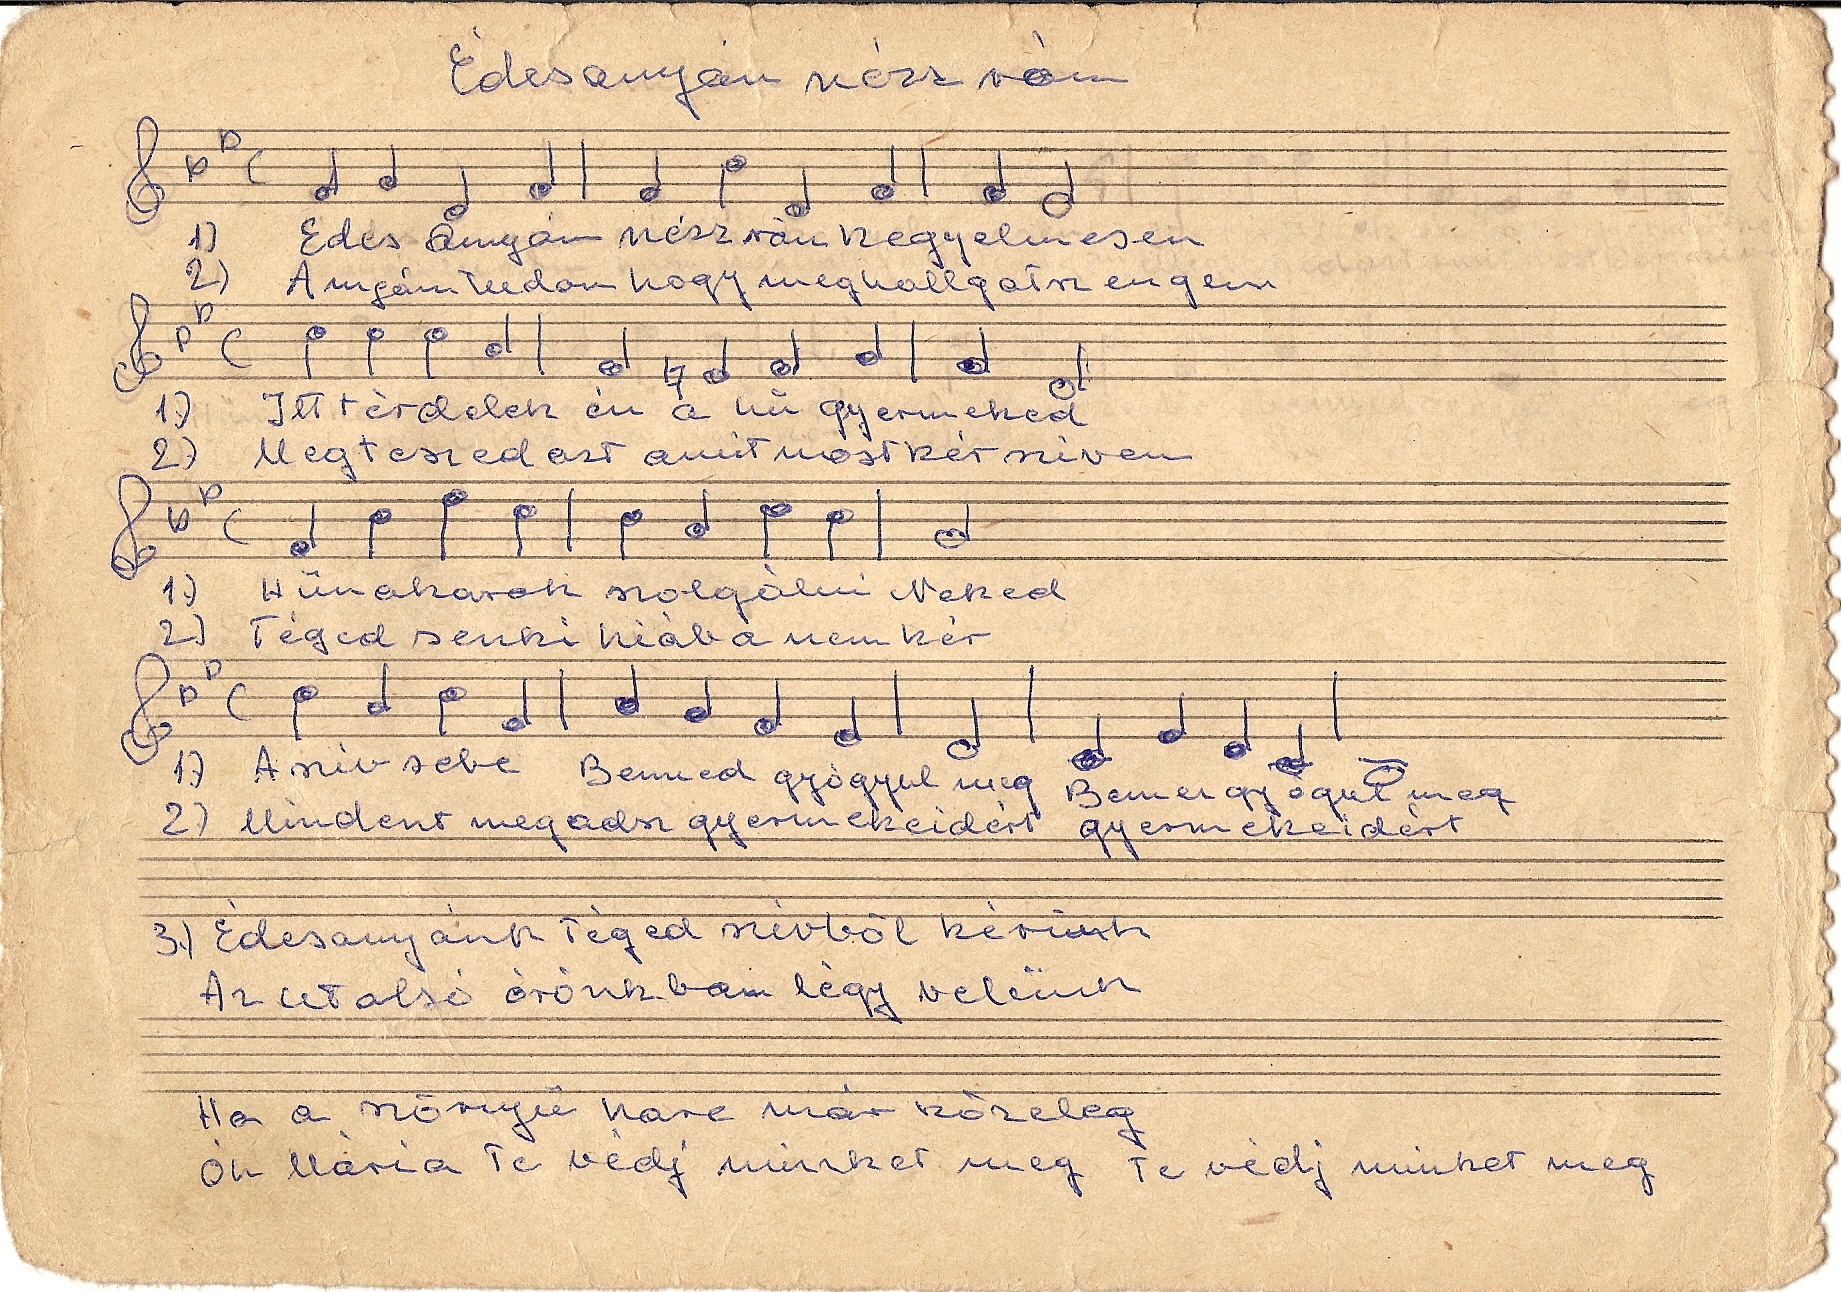 Édesanyán nézz rám
1) Édes Anyám nézz rám kegyelmesen
2) Anyám tudom hogy meghallgatsz engem
1) Itt térdelek én a hű gyermeked
2) Megteszed azt amit most kér szivem
1) Hűn akarok szolgálni Neked
2) Téged senki hiába nem kér
1) A sziv sebe Benned gyógyul meg Bennen gyógyul meg
2) Mindent megadsz gyermekeidért gyermekeidért
3) Édesanyánk Téged szivből kérünk
Az utolsó óránkban légy velünk
Ha a szörnyű harc már közeleg
Óh Mária Te védj minket meg Te védj minket meg